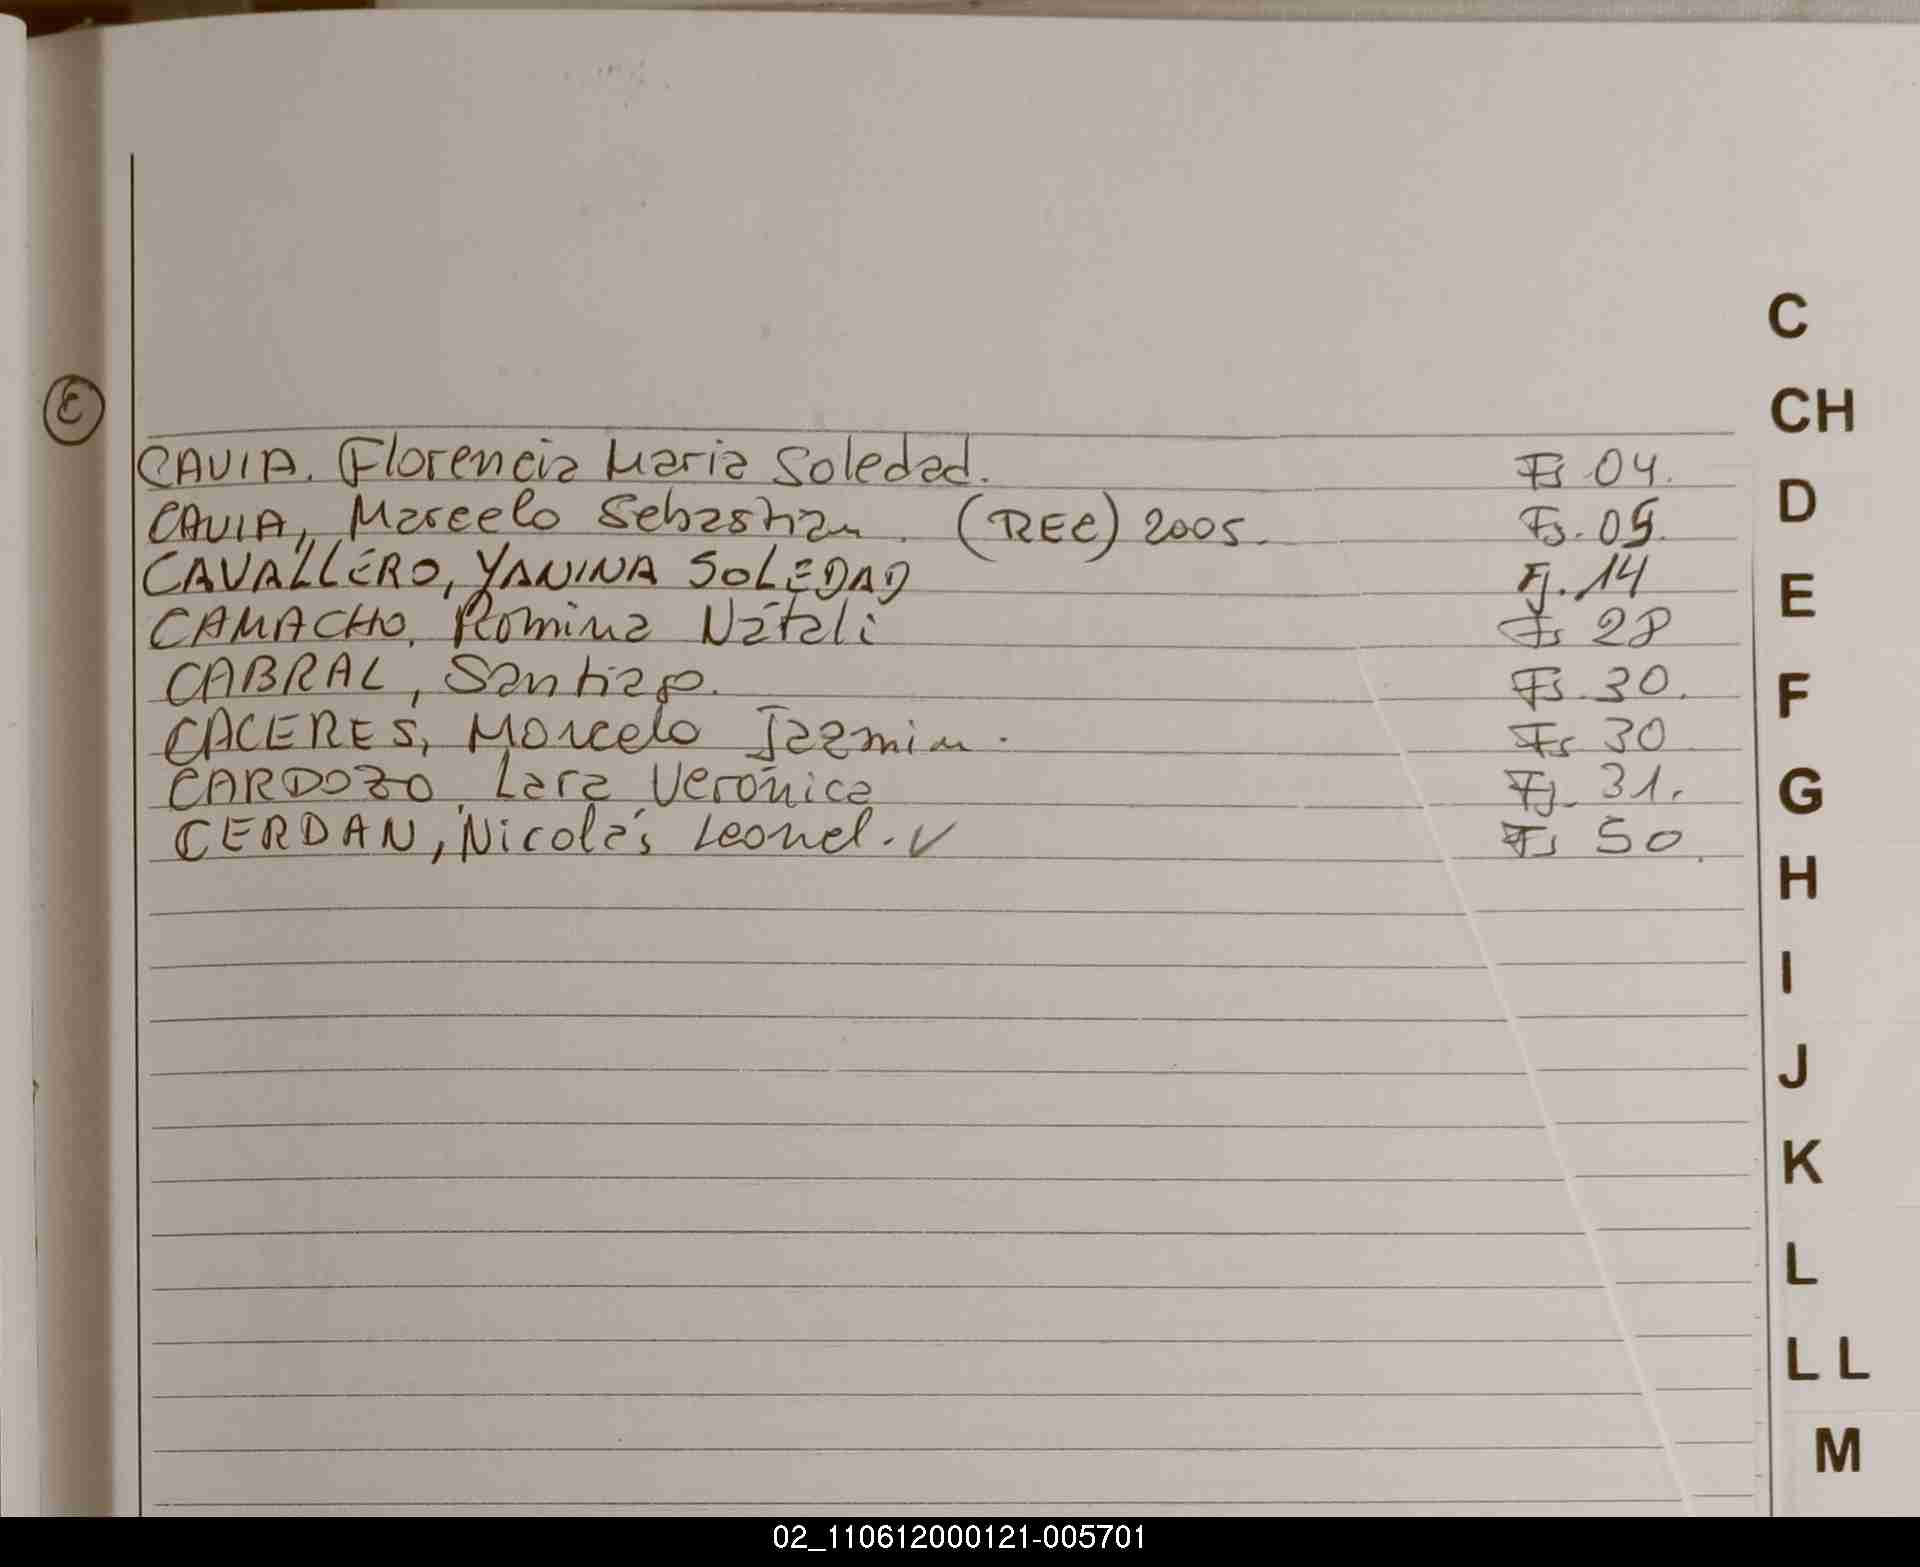 C
CH
(C)
CAVIA. Florencia Maria Soledad. Fs 04.
D
CAVIA, Marcelo Sebastian. (REC) 2005. Fs. 05.
CAVALLERO, YANINA SOLEDAD Fj. 14
E
CAMACHO, Romina Natali Fs 28
CABRAL, Santiago. Fs. 30.
F
CACERES, Marcelo Jazmin. Fs 30
CARDOZO, Lara Verónica Fj. 31.
G
CERDAN, Nicolás Leonel. ✓ Fs 50.
H
I
J
K
L
LL
M
02_110612000121-005701